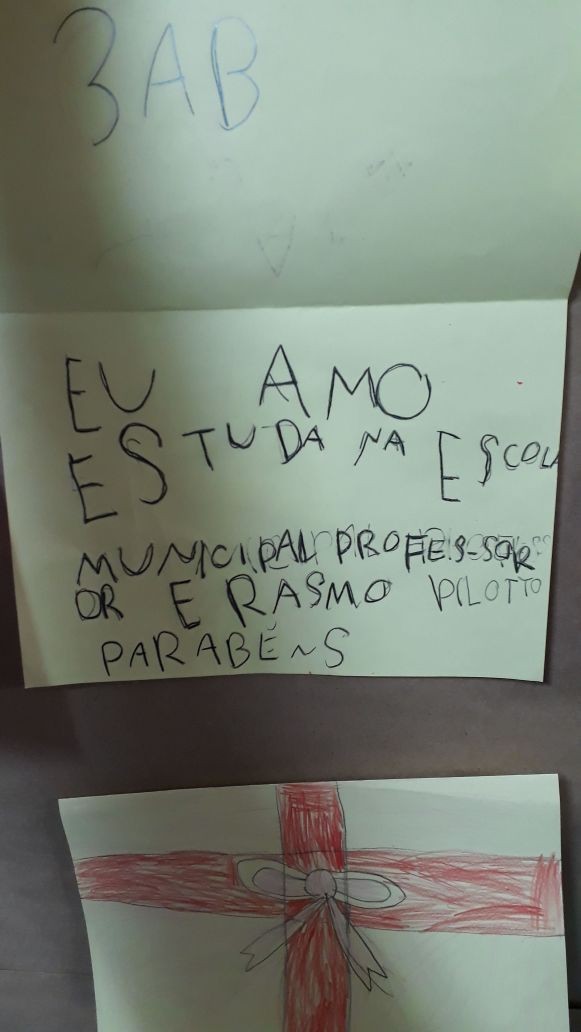 3AB
EU AMO
ESTUDA NA ESCOLA
MUNICIPAL PROFESSOR
OR ERASMO PILOTTO
PARABÉNS